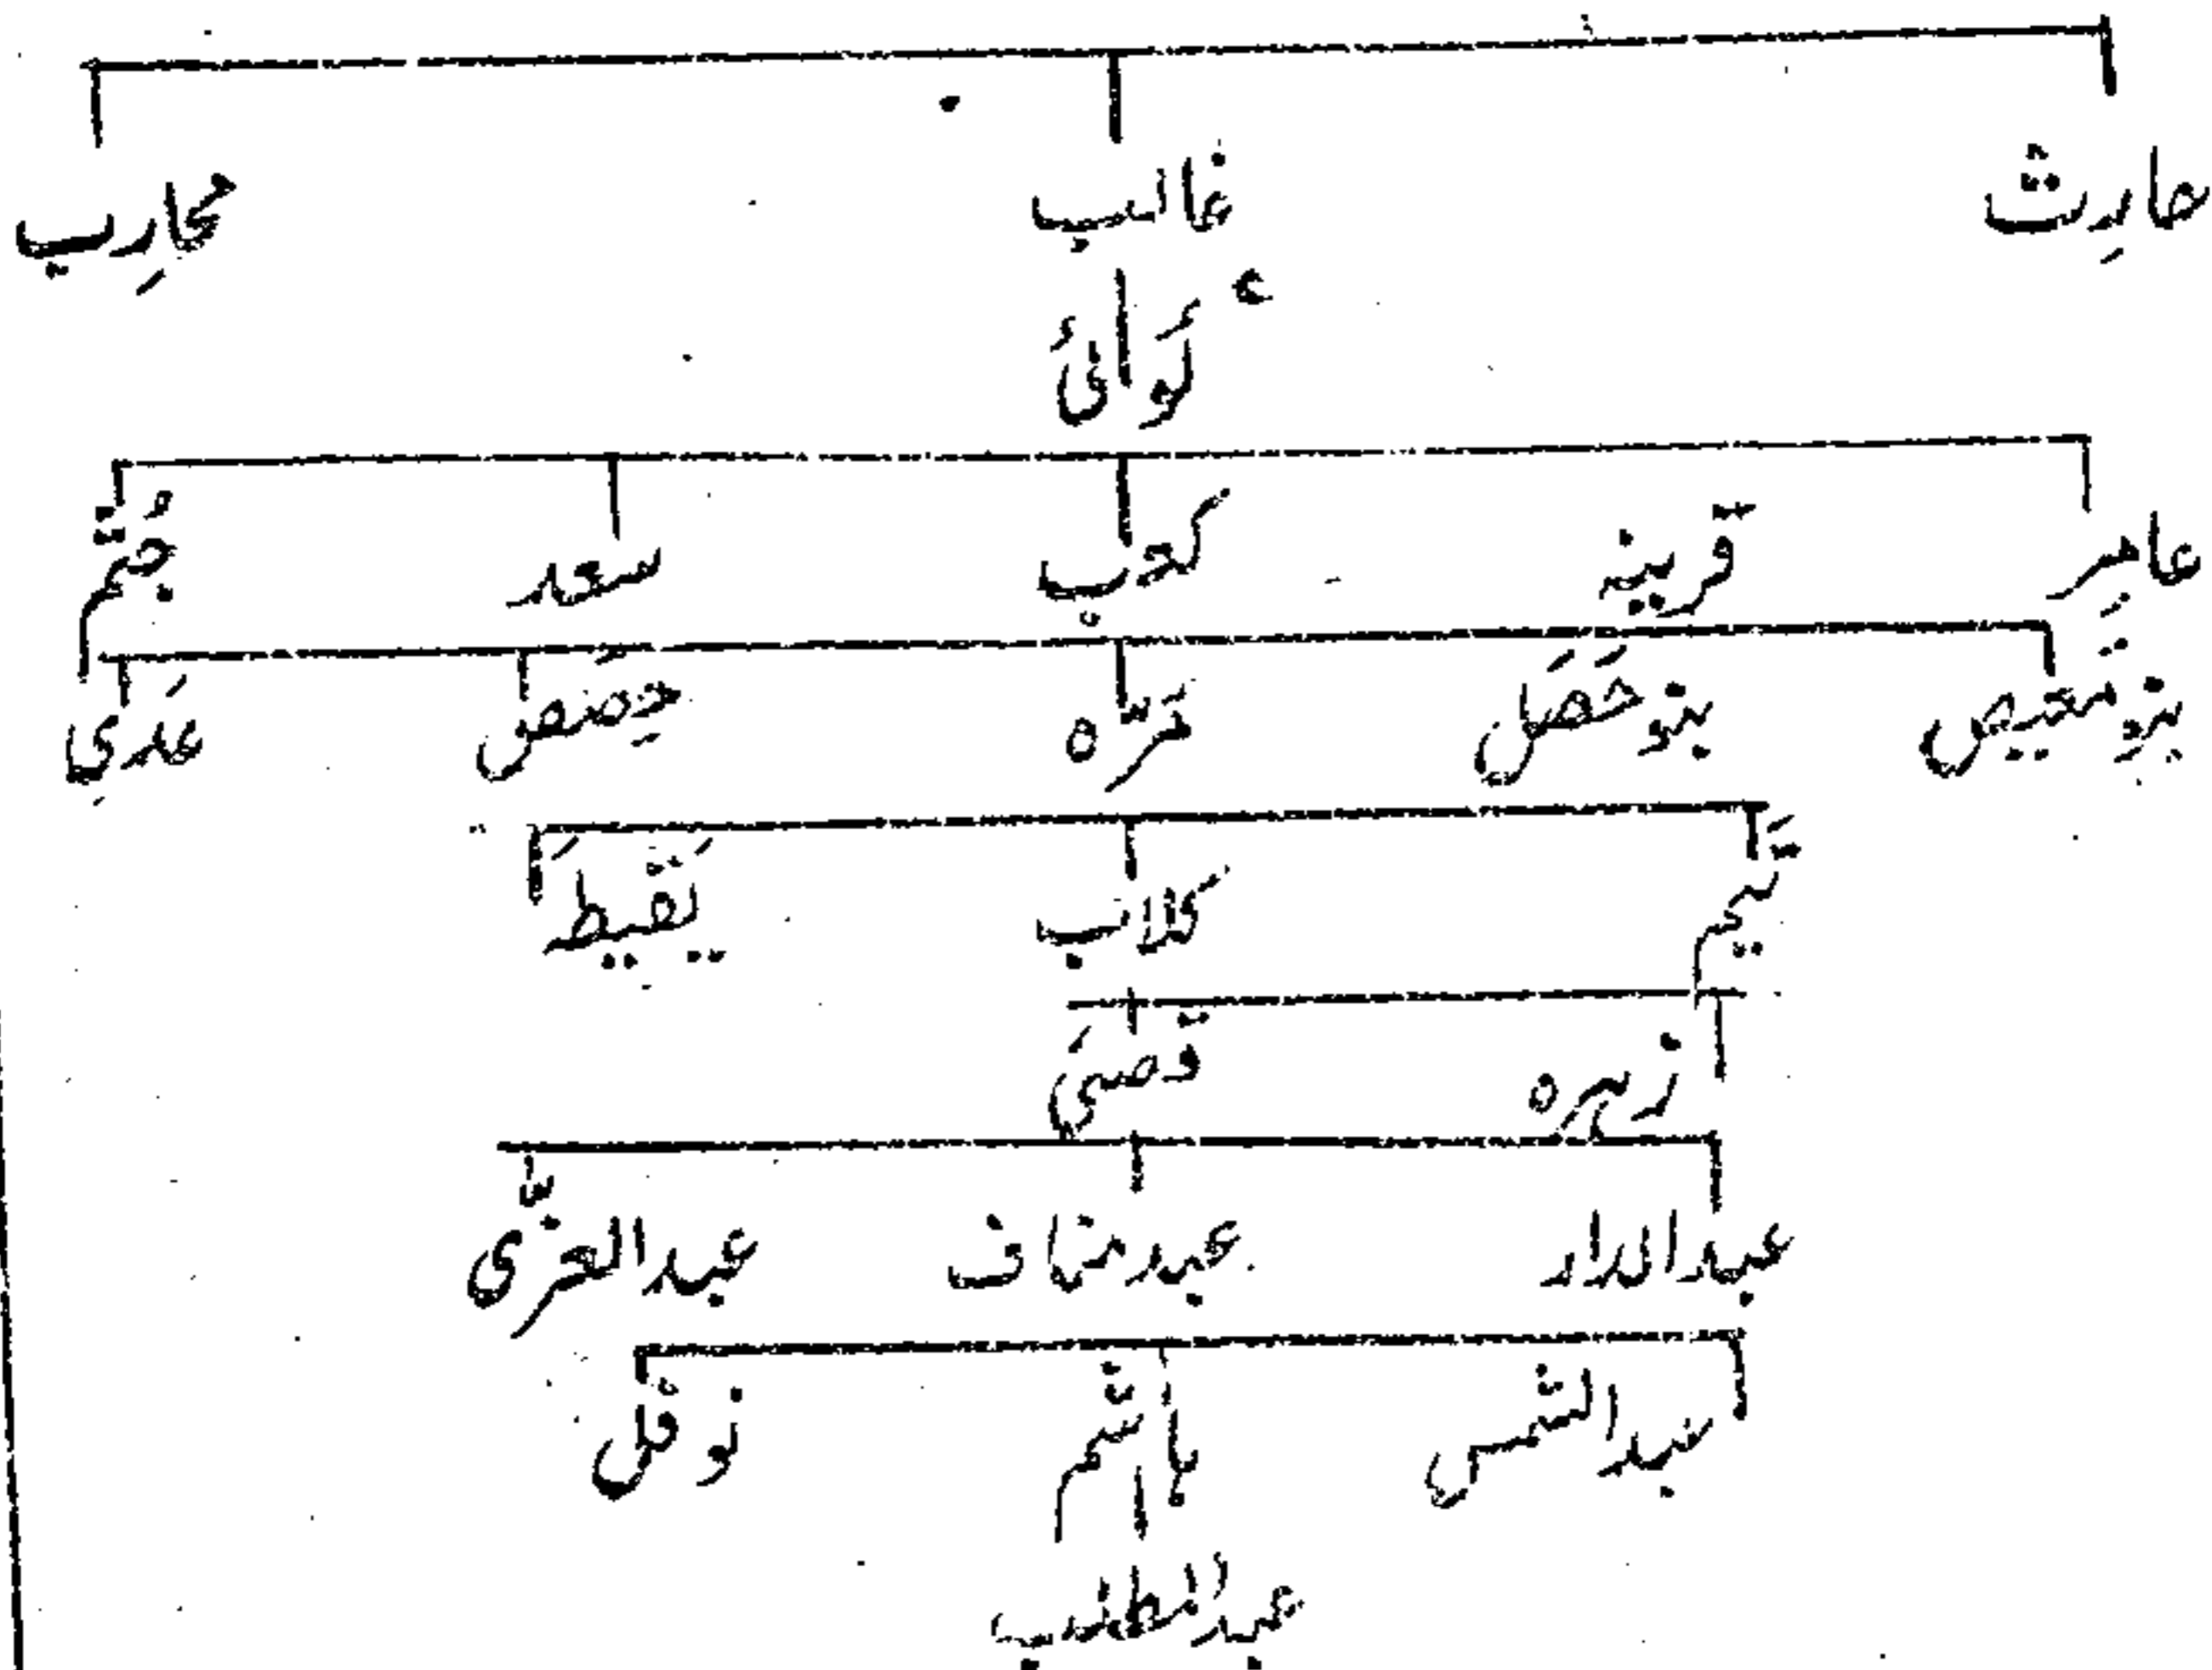 حارِث غالب محارِب
لَوَائ
عامِر قرینہ کعب سعد جُثم
بنو مَعیص بنو حَصَل مَرّہ حِصَص عَدَی
تَیم کَلاب یَقیطَہ
زہرہ قصَی
عبدالدار عبدمناف عبدالعزّی
عبدالشمس ہاشم نوفل
عبدالمطلب